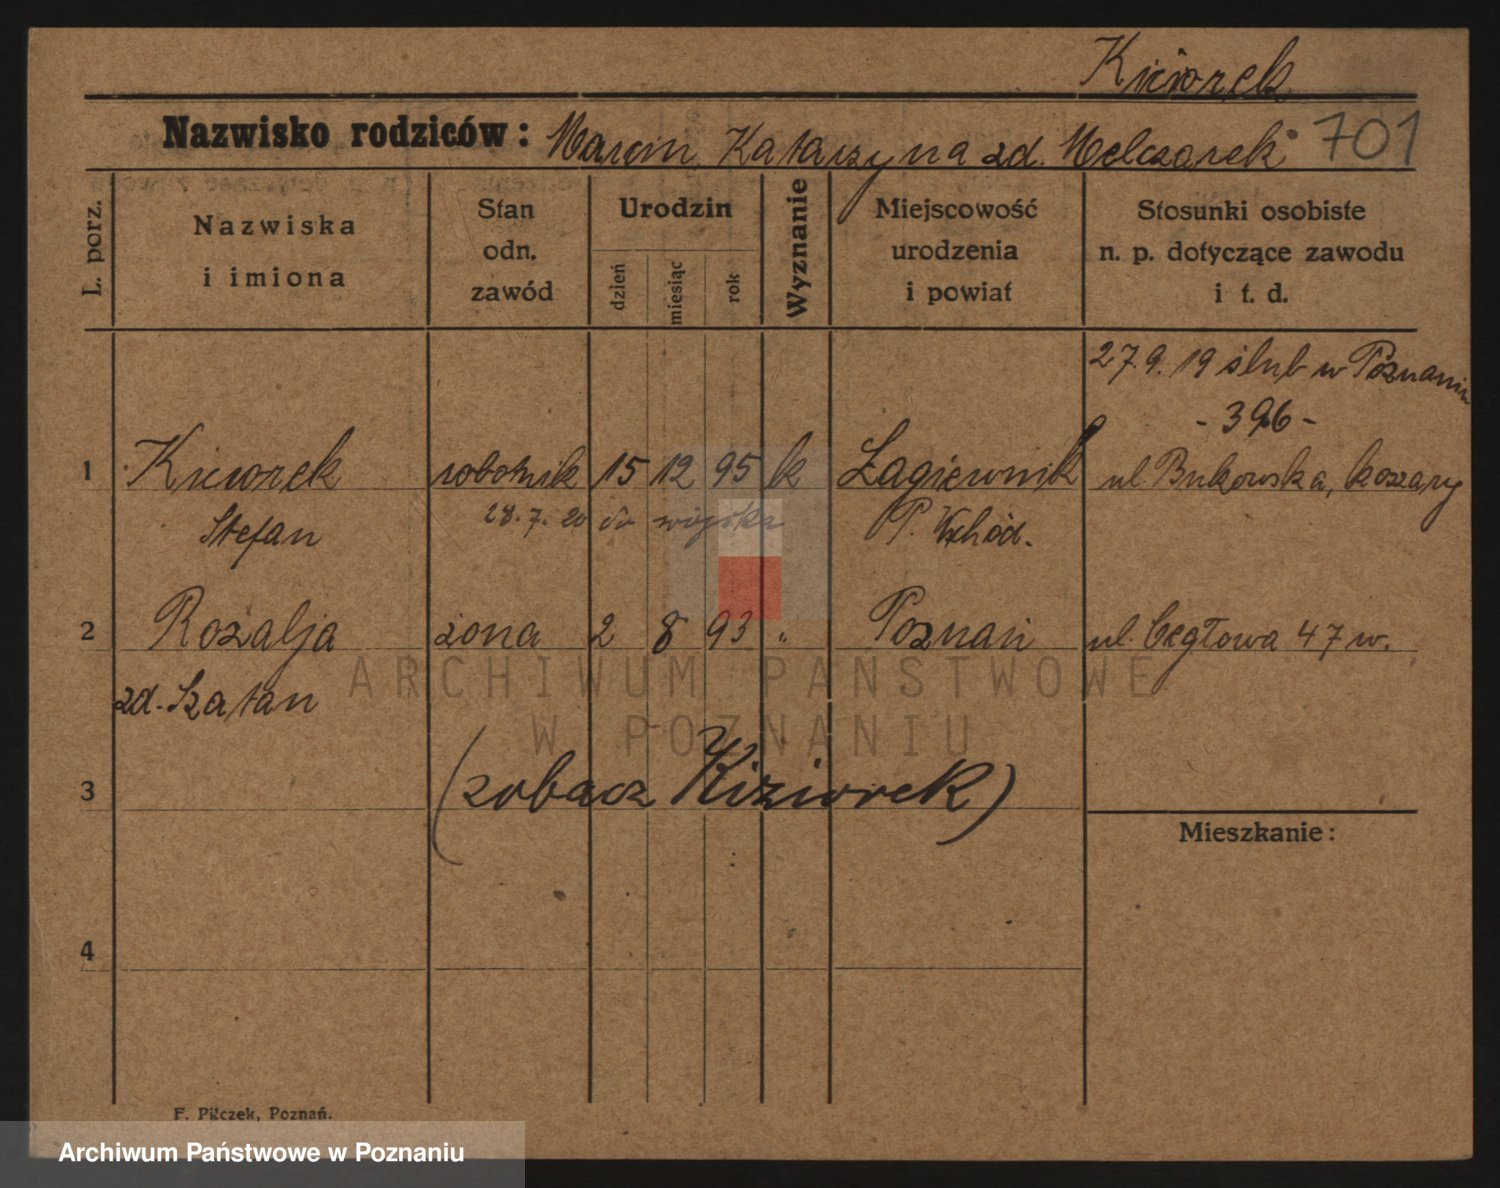 Kiciorek
Nazwisko rodziców: Marcin Katarzyna zd. Melczarek 701
L. porz.
Nazwiska i imiona
Stan odn. zawód
Urodzin
dzień miesiąc rok
Wyznanie
Miejscowość urodzenia i powiat
Stosunki osobiste n. p. dotyczące zawodu i t. d.
27.9.19 ślub w Poznaniu
- 396 -
1 Kiciorek robotnik 15 12 95 k Łagiewnik ul. Bukowska, koszary
Stefan 28.7.20 do wojska P. Wschód.
2 Rozalja żona 2 8 93 " Poznań ul. Cegłowa 47 w.
zd. Szatan
ARCHIWUM PAŃSTWOWE
W POZNANIU
3 (zobacz Kiziorek)
Mieszkanie:
4
F. Pilczek, Poznań.
Archiwum Państwowe w Poznaniu